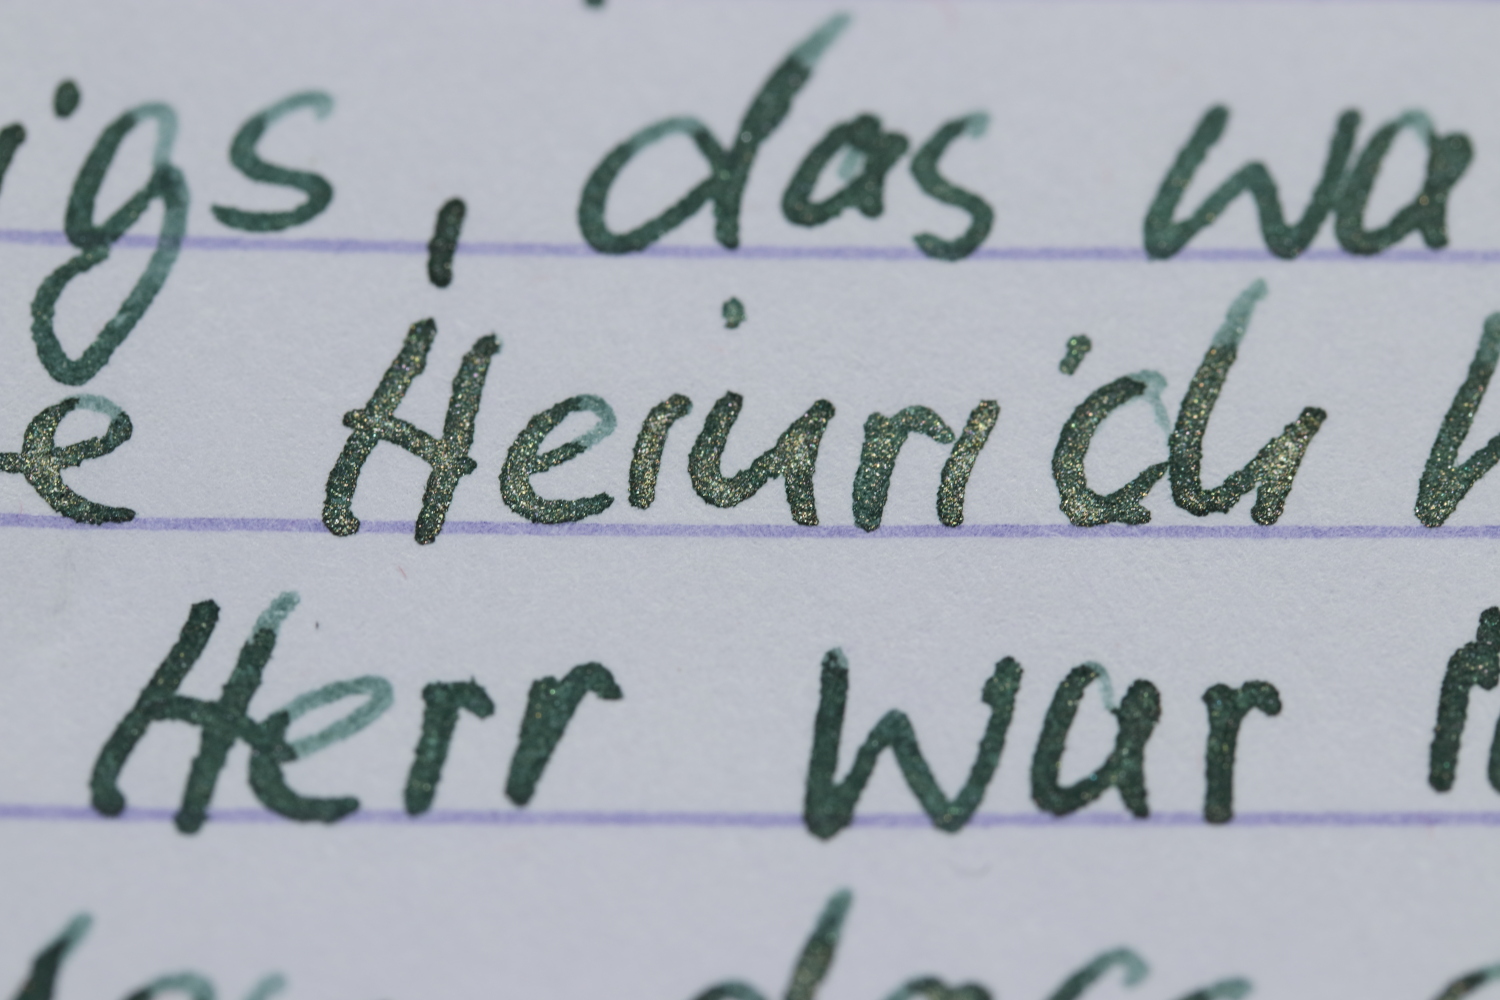 igs, das wa
e Heinrich h
Herr war
dass